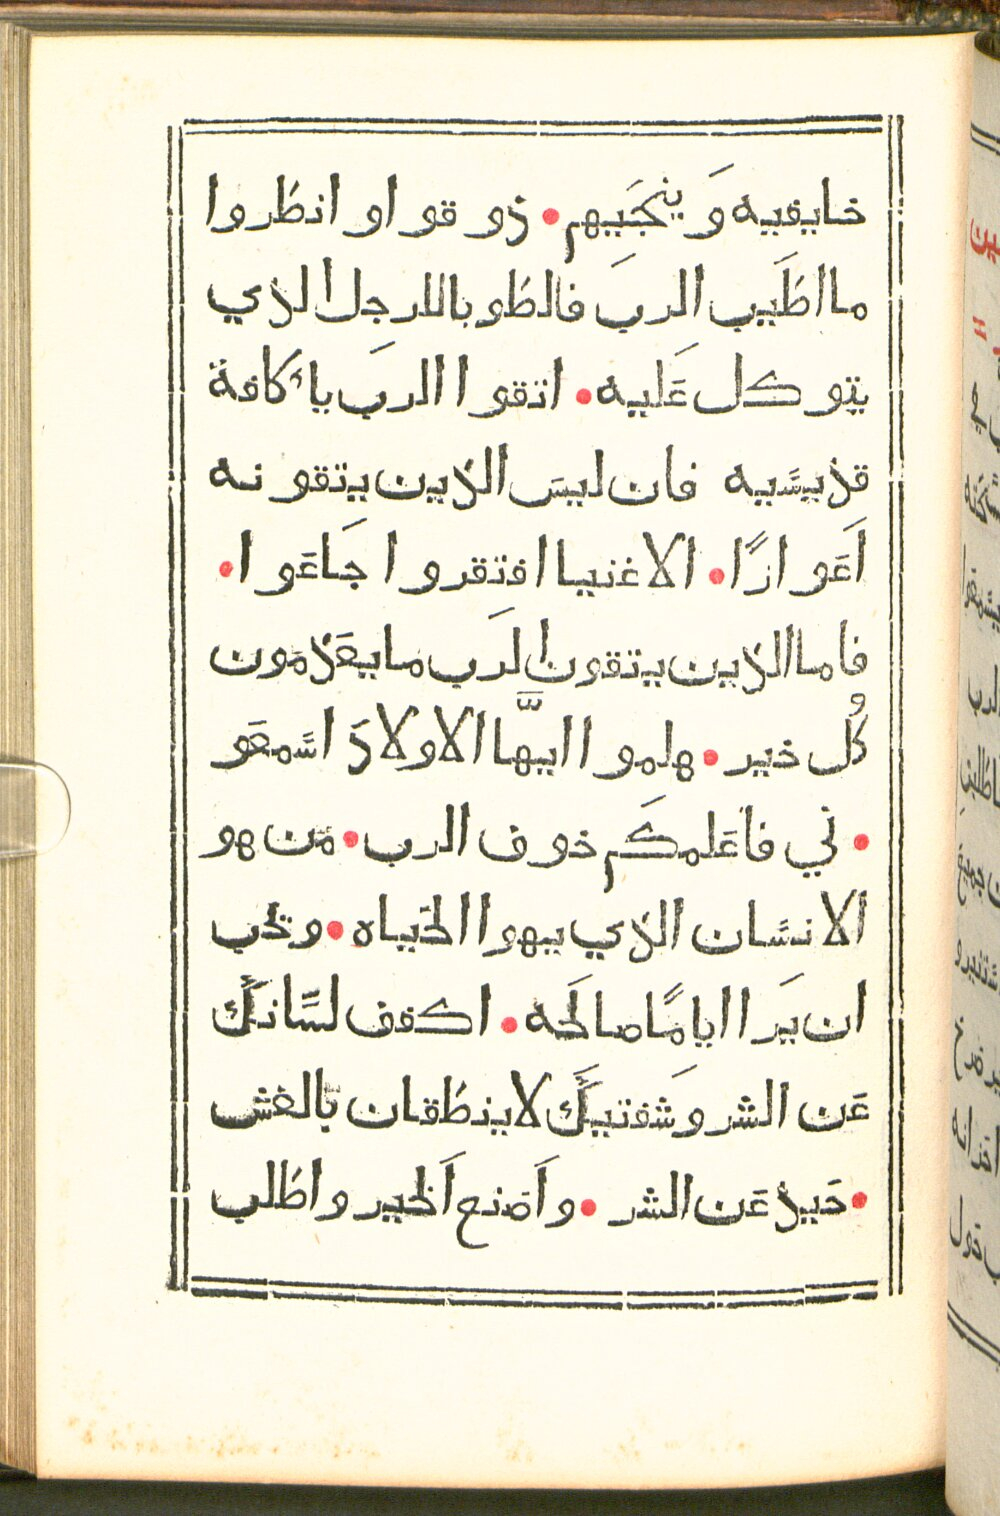 خايفيه وَ ينجَيهم • ذوقواو انظروا
ما اطَيب الربَ فالطوبا للرجَل الذي
يتوكل عَليه • اتقوا الربَ يا كافة
قديسًيه فان ليسَ الذين يتقونه
اَعَوازًا • الاغنيا افتقروا جَاعَوا •
فاما الذين يتقون الرَب ما يعَدمَون
كُل خير • هلموا ايهّا الاولادَ اسًمعَو
• ني فاعَلمكَم خوف الرب • مَن هو
الانسًان الذي يهوا الحَياه • وتحَب
ان يَرا اياماً صالحَه • اكفف لسًانكَ
عَن الشر وَشفتيكَ لا ينطقان بالغش
• حَيد عَن الشر • واَصَنع اَلخير واطلب